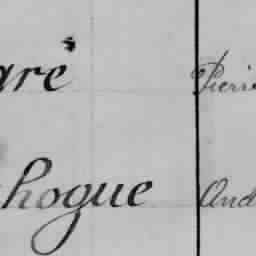 aré Pierr
hogue And